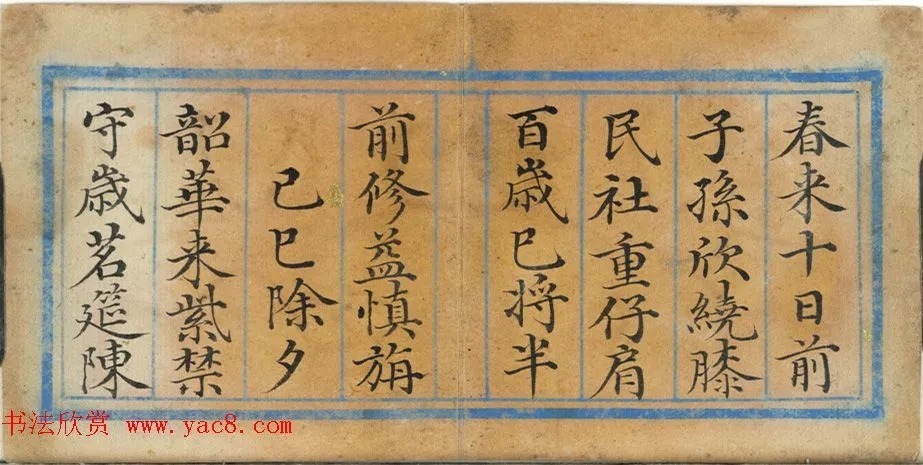 春来十日前
子孫欣繞膝
民社重仔肩
百歳已将半
前修益慎旃
己巳除夕
韶華来紫禁
守歳茗筵陳
书法欣赏 www.yac8.com